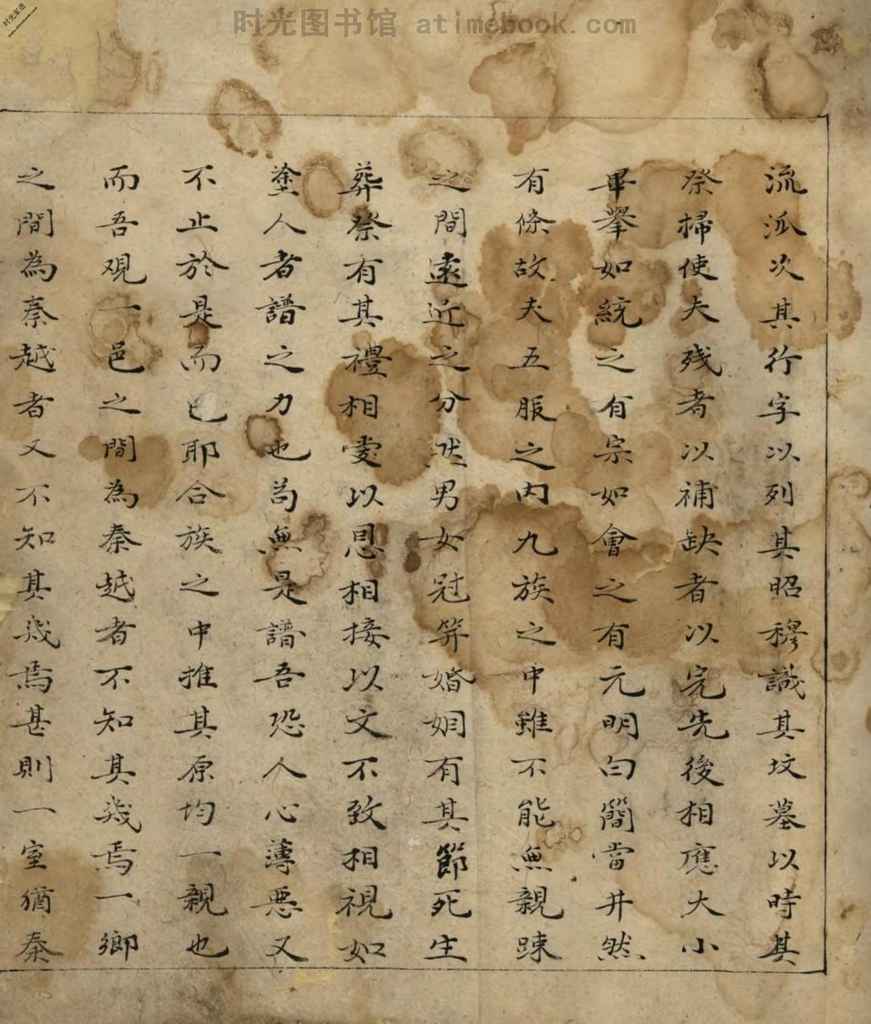 时光图书馆 atimebook.com
流派次其行字以列其昭穆識其坟墓以時其
祭掃使夫残者以補缺者以完先後相應大小
畢舉如統之有宗如會之有元明白簡當井然
有條故夫五服之内九族之中雖不能無親踈
之間遠近之分然男女冠笄婚姻有其節死生
葬祭有其禮相愛以恩相接以文不致相視如
塗人者譜之力也苟無是譜吾恐人心薄惡又
不止於是而已耶合族之中推其原均一親也
而吾观一邑之間為秦越者不知其幾焉一鄉
之間為秦越者又不知其幾焉甚則一室猶秦